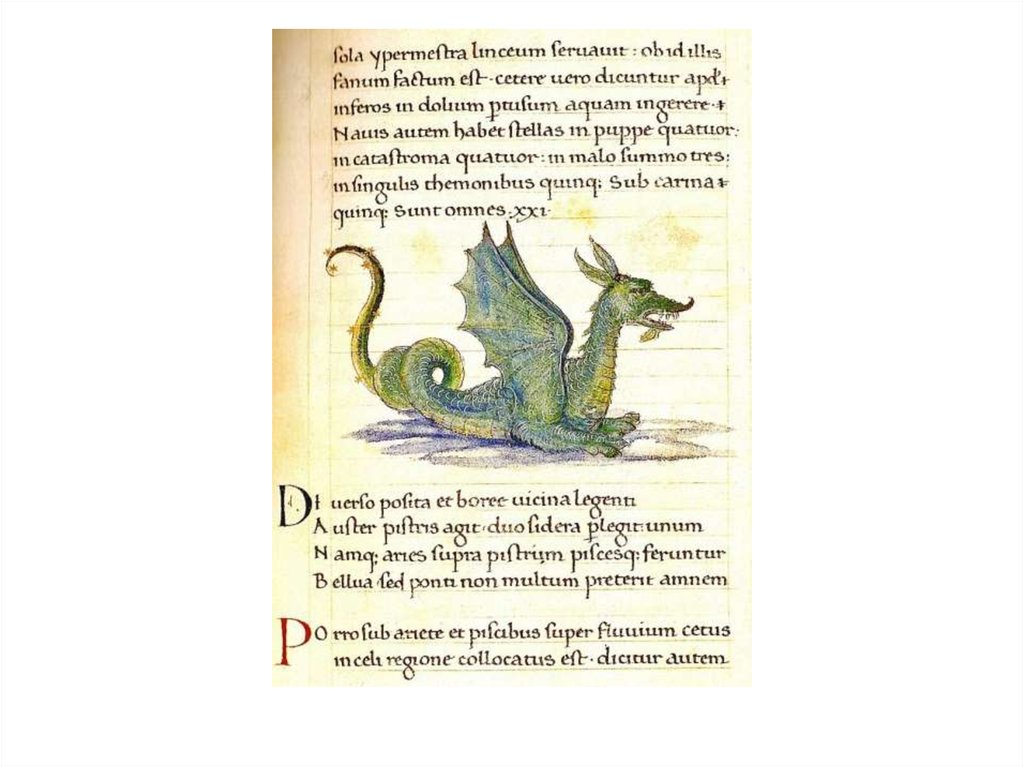 sola ypermestra linceum seruauit : ob id illis
fanum factum est · cetere uero dicuntur apd'
inferos in dolium ptusum aquam ingerere ·
Nauis autem habet stellas in puppe quatuor:
in catastroma quatuor: in malo summo tres:
in singulis themonibus quinq; Sub carina
quinq; Sunt omnes · xxi ·
Di uerso posita et boree uicina legenti
Auster pistris agit · duo sidera plegit: unum
Namq; aries supra pistrim piscesq; feruntur
Bellua sed ponti non multum preterit amnem
Porro sub ariete et piscibus super fluuium cetus
in celi regione collocatus est · dicitur autem